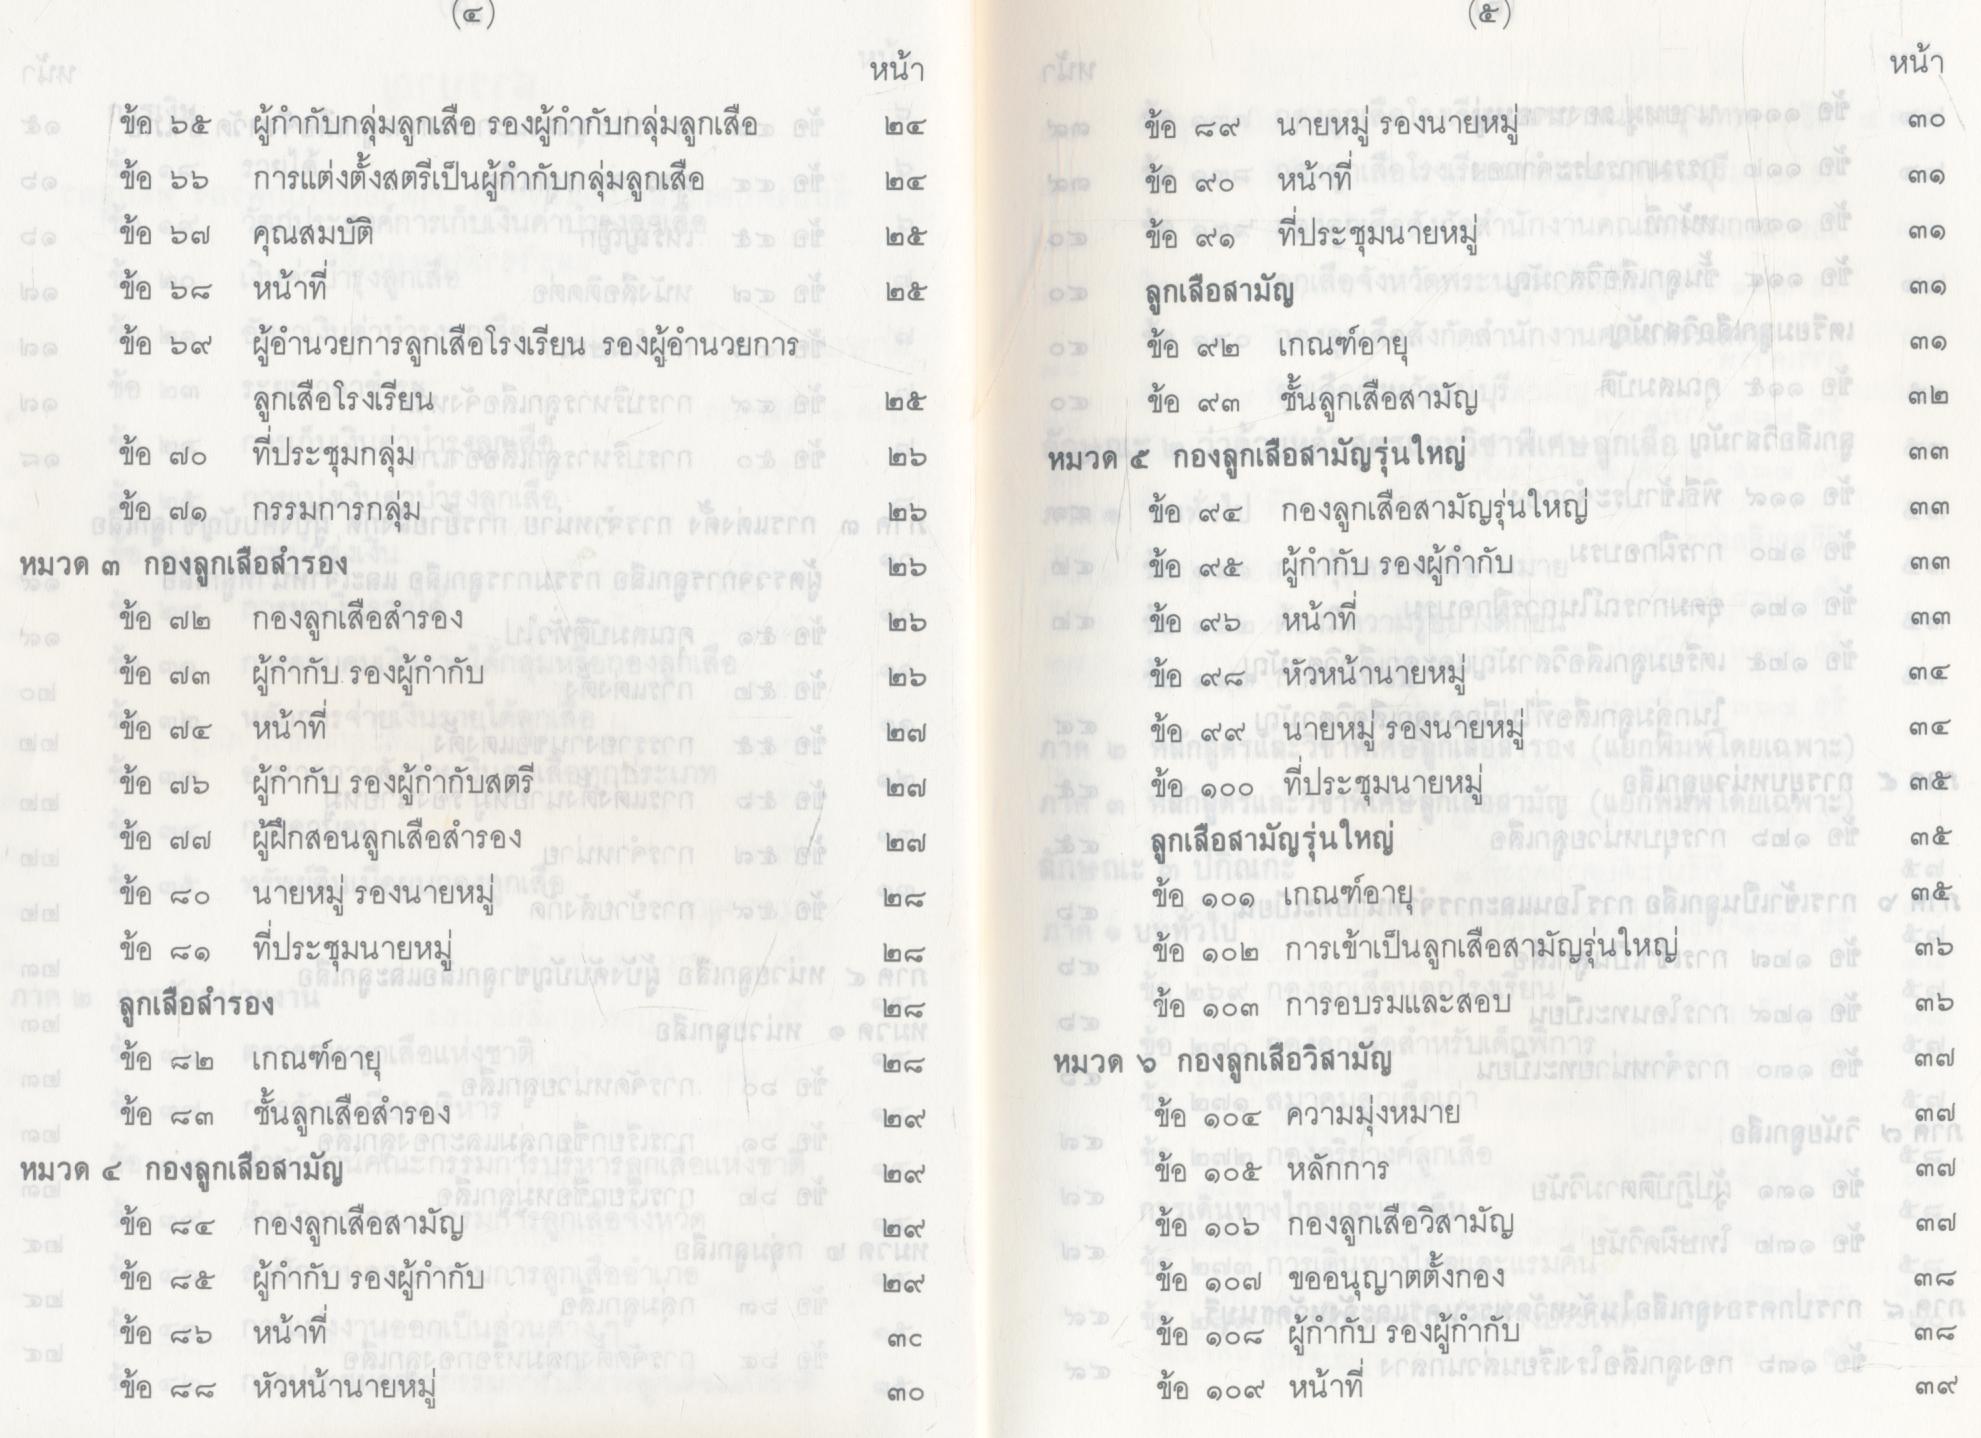 (๔)
หน้า
ข้อ ๖๕ ผู้กำกับกลุ่มลูกเสือ รองผู้กำกับกลุ่มลูกเสือ ๒๔
ข้อ ๖๖ การแต่งตั้งสตรีเป็นผู้กำกับกลุ่มลูกเสือ ๒๔
ข้อ ๖๗ คุณสมบัติ ๒๕
ข้อ ๖๘ หน้าที่ ๒๕
ข้อ ๖๙ ผู้อำนวยการลูกเสือโรงเรียน รองผู้อำนวยการ
ลูกเสือโรงเรียน ๒๕
ข้อ ๗๐ ที่ประชุมกลุ่ม ๒๖
ข้อ ๗๑ กรรมการกลุ่ม ๒๖
หมวด ๓ กองลูกเสือสำรอง ๒๖
ข้อ ๗๒ กองลูกเสือสำรอง ๒๖
ข้อ ๗๓ ผู้กำกับ รองผู้กำกับ ๒๖
ข้อ ๗๔ หน้าที่ ๒๗
ข้อ ๗๖ ผู้กำกับ รองผู้กำกับสตรี ๒๗
ข้อ ๗๗ ผู้ฝึกสอนลูกเสือสำรอง ๒๗
ข้อ ๘๐ นายหมู่ รองนายหมู่ ๒๘
ข้อ ๘๑ ที่ประชุมนายหมู่ ๒๘
ลูกเสือสำรอง ๒๘
ข้อ ๘๒ เกณฑ์อายุ ๒๘
ข้อ ๘๓ ชั้นลูกเสือสำรอง ๒๙
หมวด ๔ กองลูกเสือสามัญ ๒๙
ข้อ ๘๔ กองลูกเสือสามัญ ๒๙
ข้อ ๘๕ ผู้กำกับ รองผู้กำกับ ๒๙
ข้อ ๘๖ หน้าที่ ๓๐
ข้อ ๘๘ หัวหน้านายหมู่ ๓๐
(๕)
หน้า
ข้อ ๘๙ นายหมู่ รองนายหมู่ ๓๐
ข้อ ๙๐ หน้าที่ ๓๑
ข้อ ๙๑ ที่ประชุมนายหมู่ ๓๑
ลูกเสือสามัญ ๓๑
ข้อ ๙๒ เกณฑ์อายุ ๓๑
ข้อ ๙๓ ชั้นลูกเสือสามัญ ๓๒
หมวด ๕ กองลูกเสือสามัญรุ่นใหญ่ ๓๓
ข้อ ๙๔ กองลูกเสือสามัญรุ่นใหญ่ ๓๓
ข้อ ๙๕ ผู้กำกับ รองผู้กำกับ ๓๓
ข้อ ๙๖ หน้าที่ ๓๓
ข้อ ๙๘ หัวหน้านายหมู่ ๓๔
ข้อ ๙๙ นายหมู่ รองนายหมู่ ๓๔
ข้อ ๑๐๐ ที่ประชุมนายหมู่ ๓๕
ลูกเสือสามัญรุ่นใหญ่ ๓๕
ข้อ ๑๐๑ เกณฑ์อายุ ๓๕
ข้อ ๑๐๒ การเข้าเป็นลูกเสือสามัญรุ่นใหญ่ ๓๖
ข้อ ๑๐๓ การอบรมและสอบ ๓๖
หมวด ๖ กองลูกเสือวิสามัญ ๓๗
ข้อ ๑๐๔ ความมุ่งหมาย ๓๗
ข้อ ๑๐๕ หลักการ ๓๗
ข้อ ๑๐๖ กองลูกเสือวิสามัญ ๓๗
ข้อ ๑๐๗ ขออนุญาตตั้งกอง ๓๘
ข้อ ๑๐๘ ผู้กำกับ รองผู้กำกับ ๓๘
ข้อ ๑๐๙ หน้าที่ ๓๙